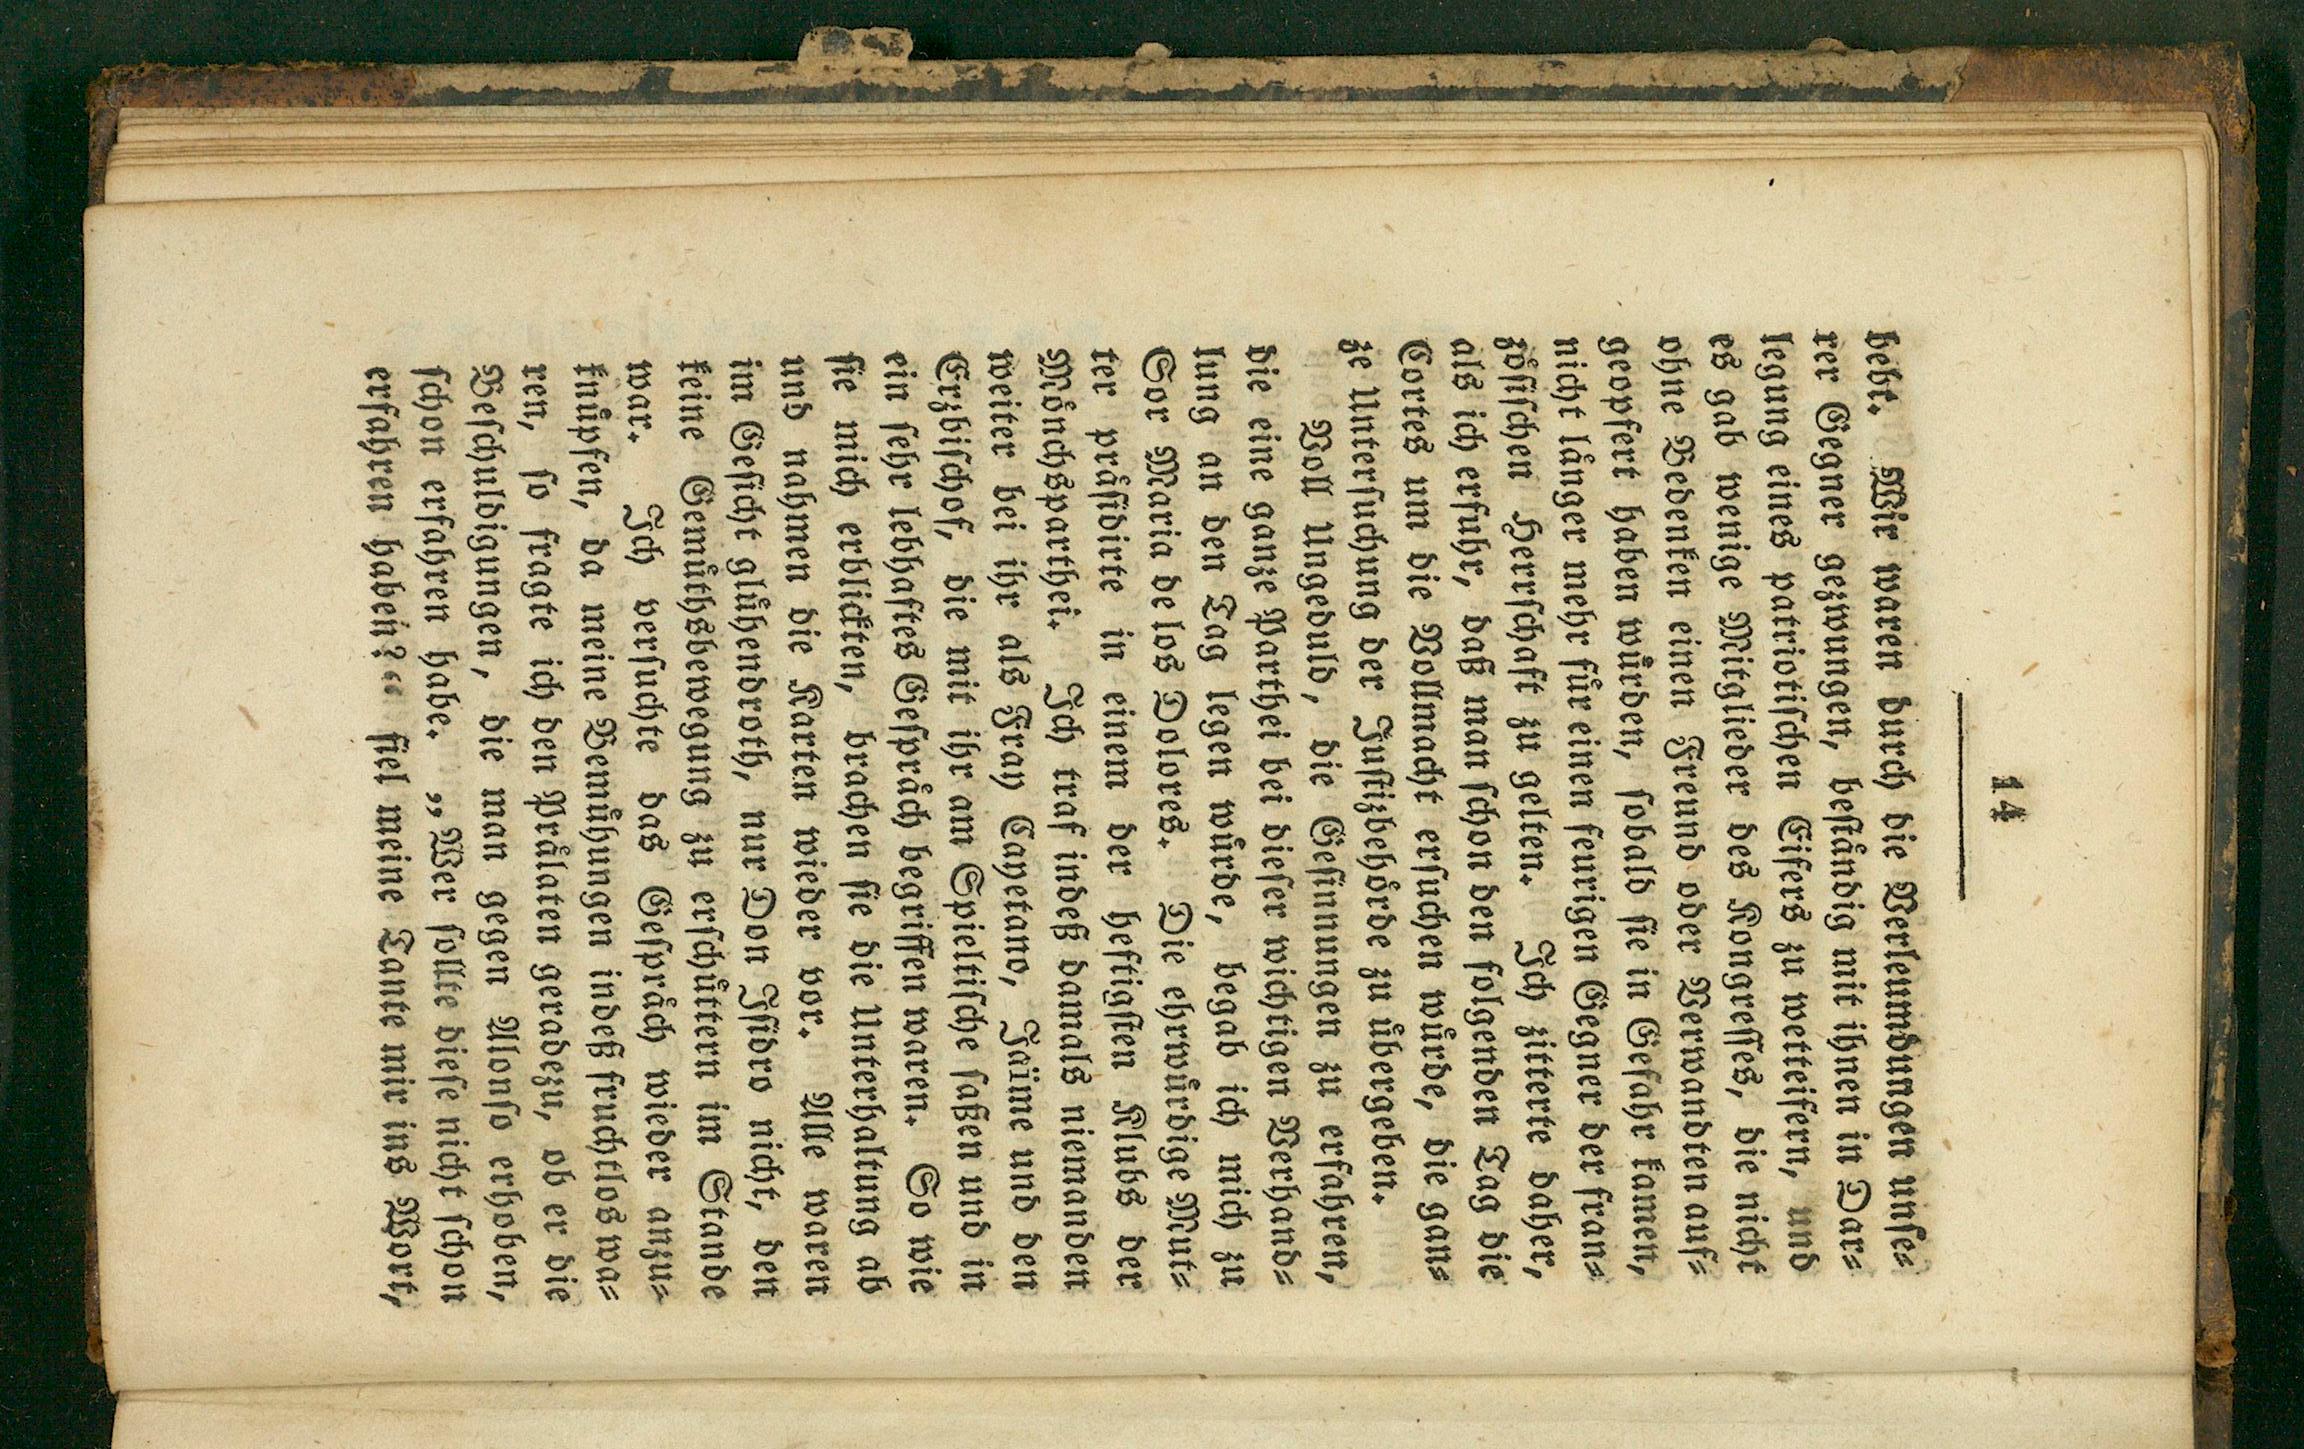 14
hebt. Wir waren durch die Verleumdungen unſe⸗
rer Gegner gezwungen, beſtåndig mit ihnen in Dar⸗
legung eines patriotiſchen Eifers zu wetteifern, und
es gab wenige Mitglieder des Kongreſſes, die nicht
ohne Bedenken einen Freund oder Verwandten auf⸗
geopfert haben wůrden, ſobald ſie in Gefahr kamen,
nicht långer mehr fůr einen feurigen Gegner der fran⸗
zo̊ſiſchen Herrſchaft zu gelten. Ich zitterte daher,
als ich erfuhr, daß man ſchon den folgenden Tag die
Cortes um die Vollmacht erſuchen wůrde, die gan⸗
ze Unterſuchung der Juſtizbeho̊rde zu ůbergeben.
Voll Ungeduld, die Geſinnungen zu erfahren,
die eine ganze Parthei bei dieſer wichtigen Verhand⸗
lung an den Tag legen wůrde, begab ich mich zu
Sor Maria de los Dolores. Die ehrwůrdige Mut⸗
ter pråſidirte in einem der heftigſten Klubs der
Mo̊nchsparthei. Ich traf indeß damals niemanden
weiter bei ihr als Fray Cayetano, Jaime und den
Erzbiſchof, die mit ihr am Spieltiſche ſaßen und in
ein ſehr lebhaftes Geſpråch begriffen waren. So wie
ſie mich erblickten, brachen ſie die Unterhaltung ab
und nahmen die Karten wieder vor. Alle waren
im Geſicht glůhendroth, nur Don Iſidro nicht, den
keine Gemůthsbewegung zu erſchůttern im Stande
war. Ich verſuchte das Geſpråch wieder anzu⸗
knůpfen, da meine Bemůhungen indeß fruchtlos wa⸗
ren, ſo fragte ich den Pråſaten geradezu, ob er die
Beſchuldigungen, die man gegen Alonſo erhoben,
ſchon erfahren habe. „Wer ſollte dieſe nicht ſchon
erfahren haben?“ fiel meine Tante mir ins Wort,